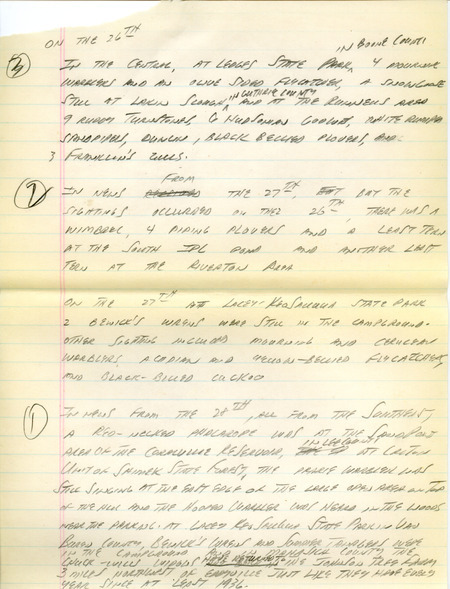 ON THE 26TH
IN BOONE COUNTY
③ IN THE CENTRAL, AT LEDGES STATE PARK, 4 MOURNING
WARBLERS AND AN OLIVE SIDED FLYCATCHER, A SNOWGOOSE
IN GUTHRIE COUNTY
STILL AT LAKIN SLOUGH, AND AT THE RUNNELLS AREA
9 RUDDY TURNSTONES, 6 HUDSONIAN GODWITS, WHITE RUMPED
SANDPIPERS, DUNLIN, BLACK BELLIED PLOVERS,
3 FRANKLIN'S GULLS.
FROM
② IN NEWS THE 27TH, BUT THE
SIGHTINGS OCCURRED ON THE 26TH, THERE WAS A
WIMBREL, 4 PIPING PLOVERS AND A LEAST TERN
AT THE SOUTH IPL POND AND ANOTHER LEAST
TERN AT THE RIVERTON AREA
ON THE 27TH AT LACEY-KEOSAUQUA STATE PARK
2 BEWICK'S WRENS WERE STILL IN THE CAMPGROUND.
OTHER SIGHTING INCLUDED MOURNING AND CERULEAN
WARBLERS, ACADIAN AND YELLOW-BELLIED FLYCATCHERS,
AND BLACK-BILLED CUCKOO
① IN NEWS FROM THE 28TH, ALL FROM THE SOUTHEAST,
A RED-NECKED PHALAROPE WAS AT THE SAND POINT
IN LEE COUNTY
AREA OF THE CORALVILLE RESERVOIR, AT CROTON
UNIT OF SHIMEK STATE FOREST, THE PRAIRIE WARBLER WAS
STILL SINGING AT THE EAST EDGE OF THE LARGE OPEN AREA ON TOP
OF THE HILL AND THE HOODED WARBLER WAS HEARD IN THE WOODS
NEAR THE PARKING. AT LACEY KEOSAUQUA STATE PARK IN VAN
BUREN COUNTY, BEWICK'S WRENS AND SUMMER TANAGERS WERE
IN THE CAMPGROUND. IN MAHASKA COUNTY THE
CHUCK-WILLS WIDOWS HAVE RETURNED THE JOHNSON TREE FARM
3 MILES NORTHWEST OF EDDYVILLE JUST LIKE THEY HAVE EVERY
YEAR SINCE AT LEAST 1936.